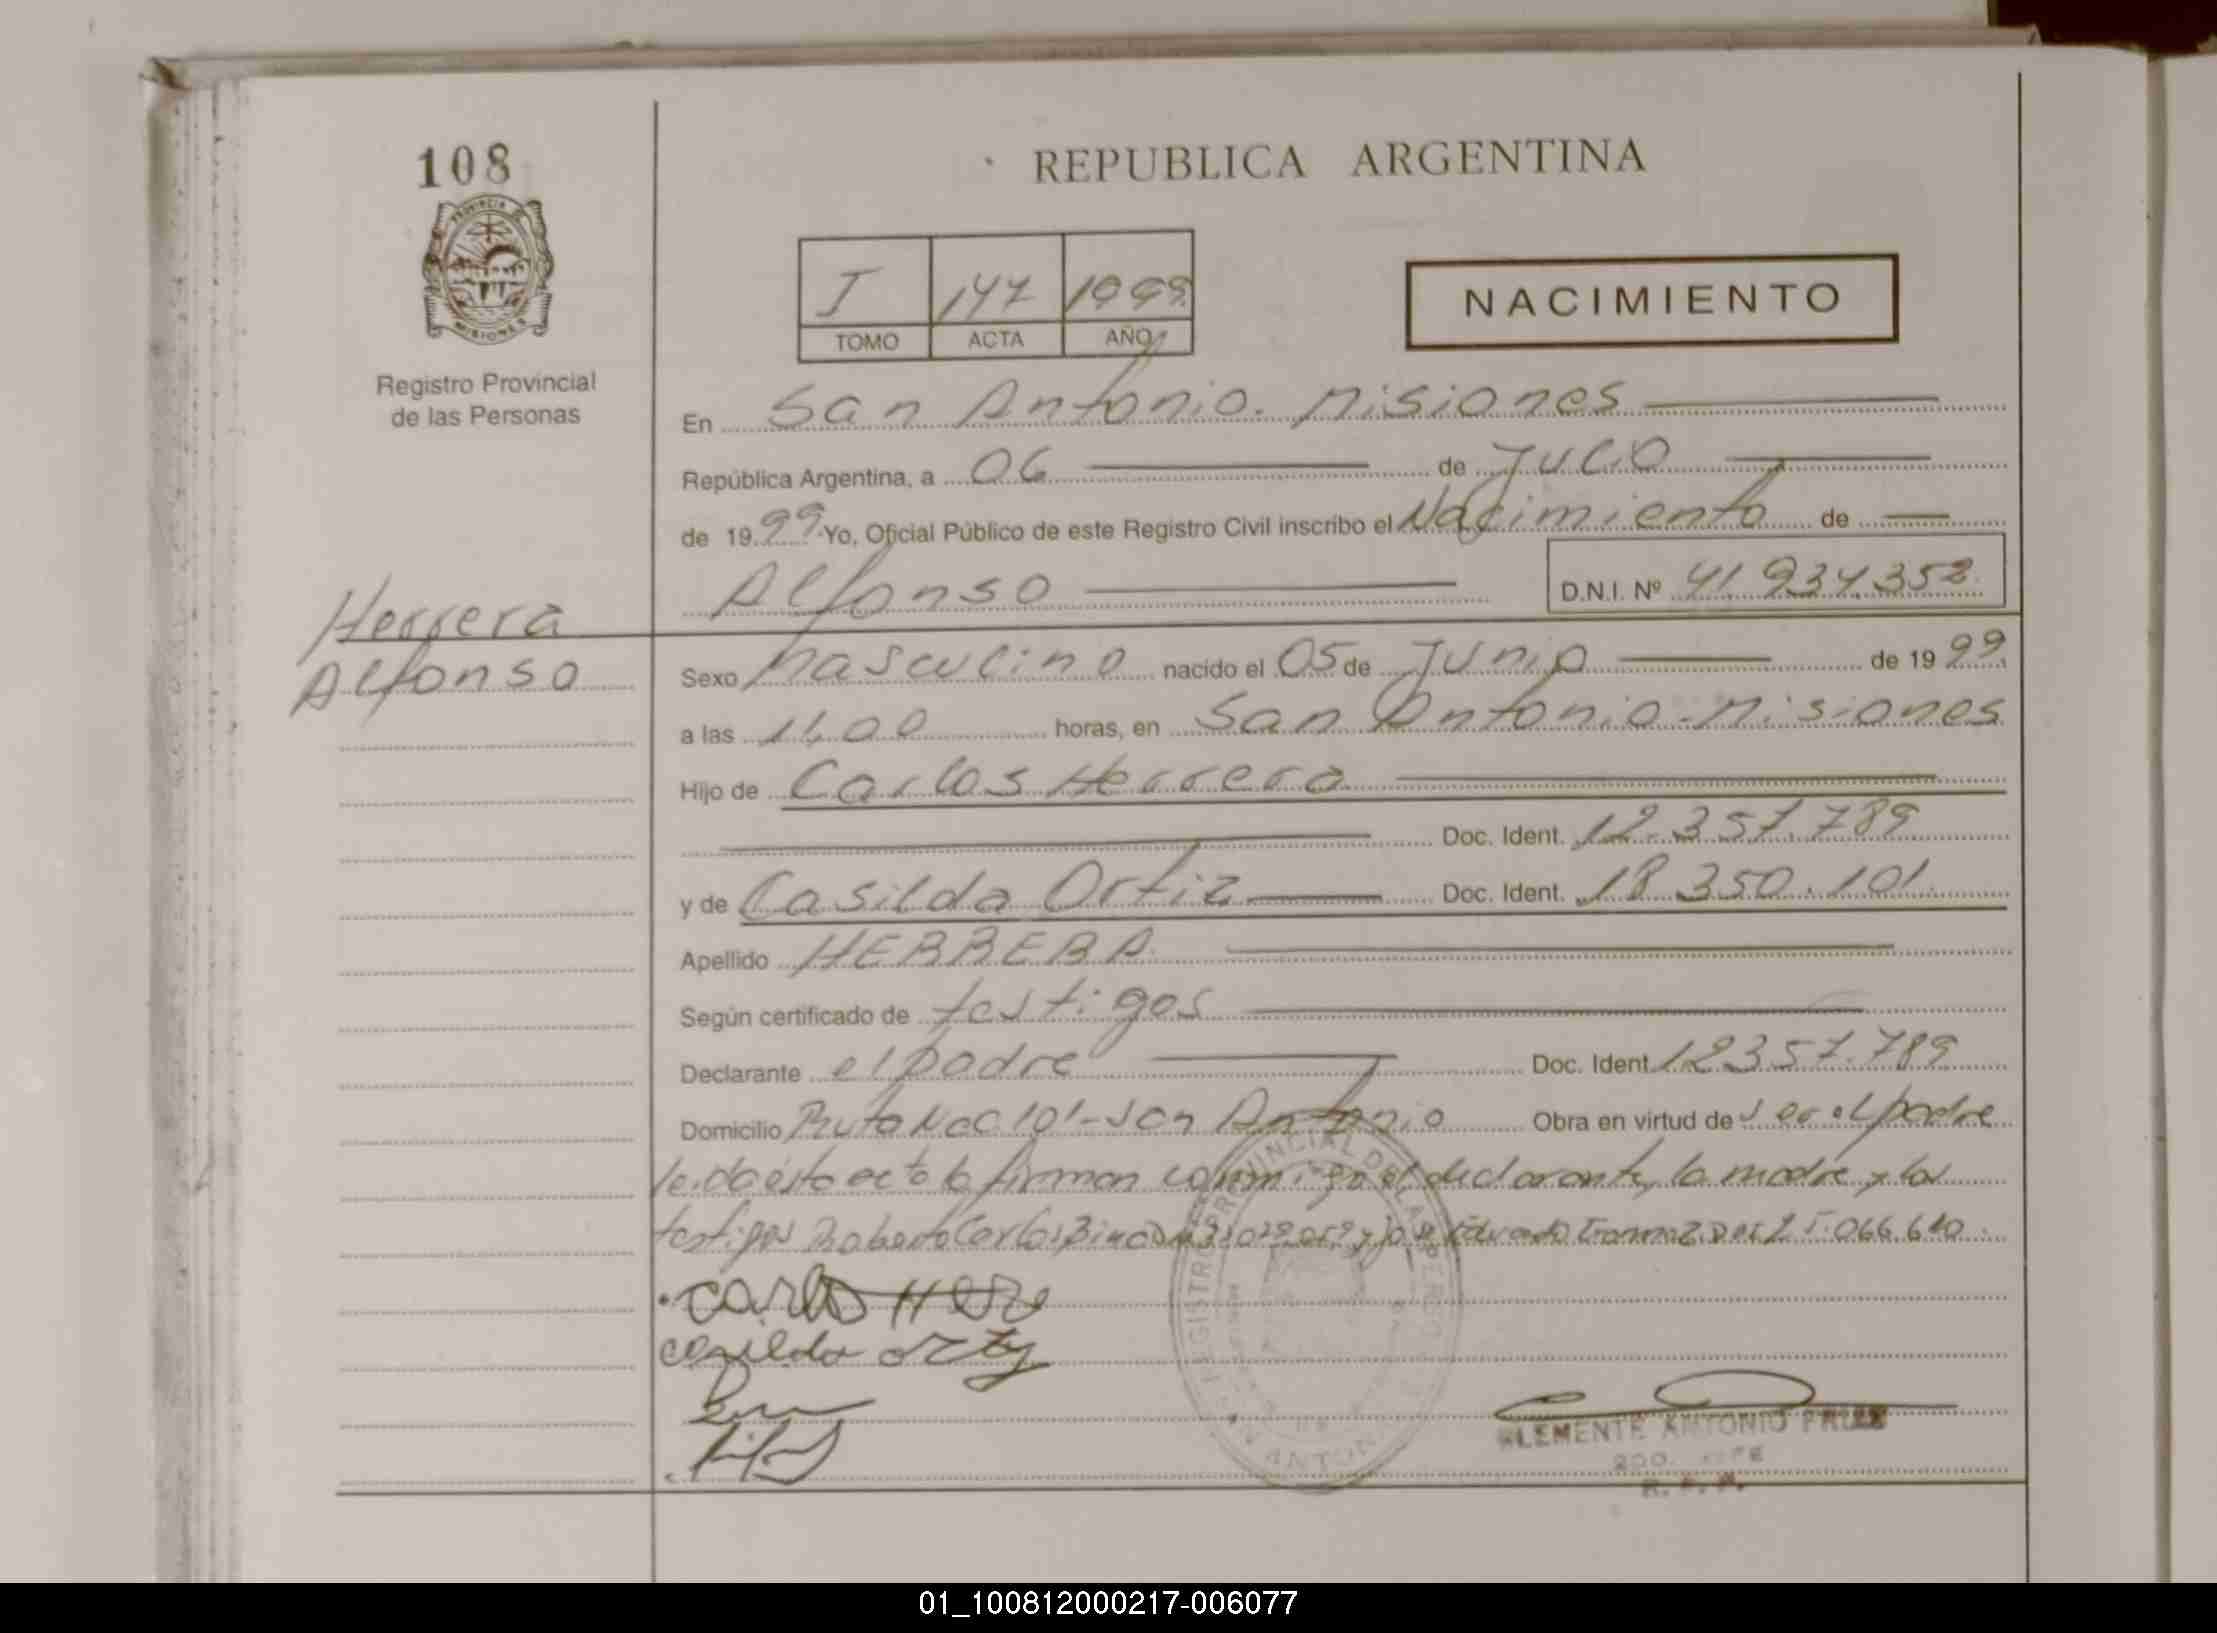 108
REPUBLICA ARGENTINA
PROVINCIA DE
MISIONES
Registro Provincial
de las Personas
I 147 1999
TOMO ACTA AÑO
NACIMIENTO
En San Antonio. Misiones
República Argentina, a 06 de Julio
de 1999 Yo, Oficial Público de este Registro Civil inscribo el Nacimiento de
Alfonso D.N.I. Nº 41.934.352
Herrera
Alfonso
Sexo Masculino nacido el 05 de Junio de 1999
a las 11,00 horas, en San Antonio - Misiones
Hijo de Carlos Herrera
Doc. Ident. 12.357.789
y de Casilda Ortiz Doc. Ident. 18.350.101
Apellido HERRERA
Según certificado de testigos
Declarante el padre Doc. Ident. 12357.789
Domicilio Ruta Nac 101 - San Antonio Obra en virtud de ser el padre
leida ésta acta la firman conmigo el declarante, la madre y los
testigos Roberto Carlos y José Eduardo 066.610
Carlos
casilda
CLEMENTE ANTONIO
R.P.P.
01_100812000217-006077